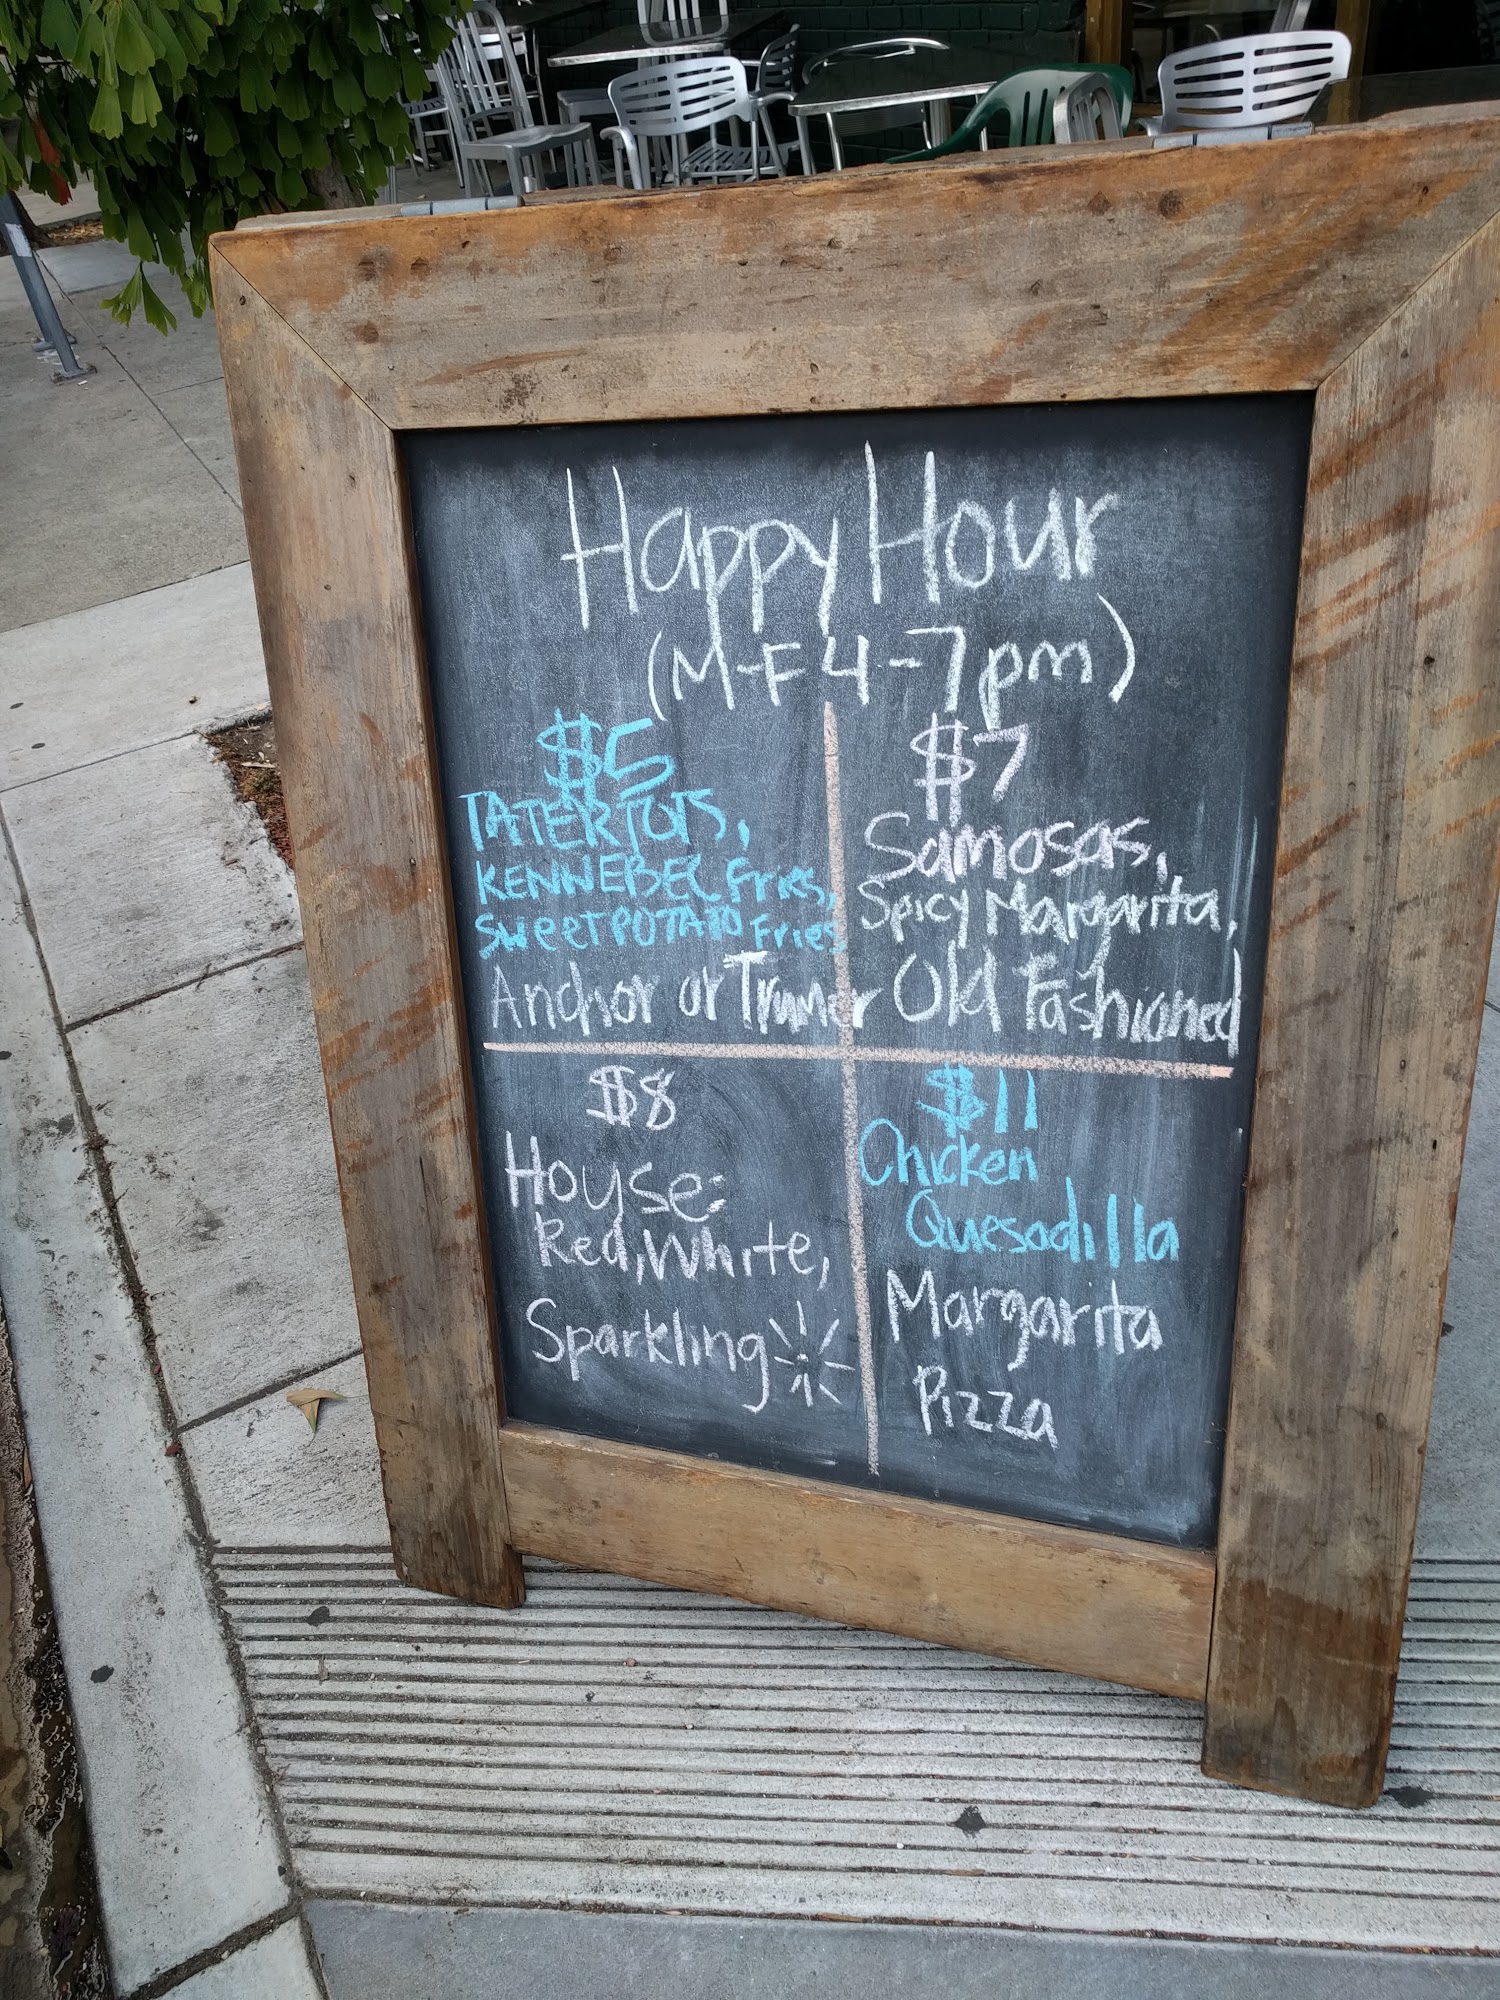 Happy Hour
(M-F 4-7pm)
$5
TATER TOTS,
KENNEBEC Fries,
SWEET POTATO Fries
Anchor or Trumer
$7
Samosas,
Spicy Margarita,
Old Fashioned
$8
House:
Red, White,
Sparkling
$11
Chicken
Quesadilla
Margarita
Pizza